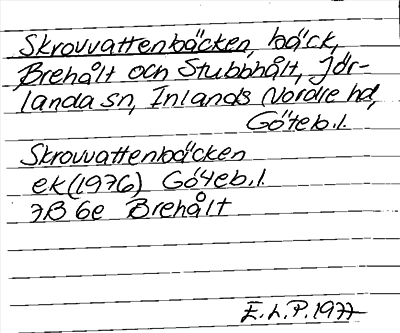 Skrovvattenbäcken, bäck,
Brehålt och Stubbhålt, Jör-
landa sn, Inlands Nordre hd,
Göteb.l.
Skrovvattenbäcken
ek (1976) Göteb.l.
7B 6e Brehålt
E.L.P. 1977